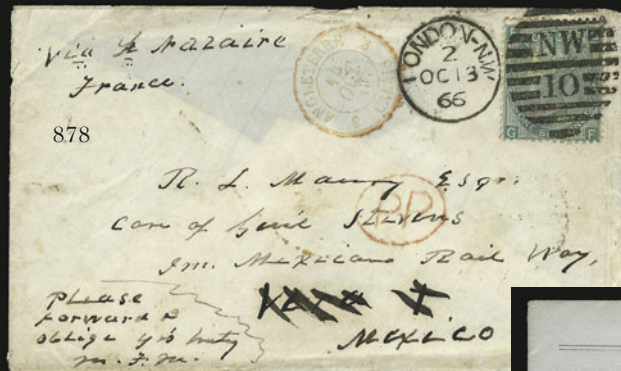 Via St Nazaire
France.
ANGLETERRE
LONDON-NW
2
OC 13
66
NW
10
G F
878
R. L. Maury Esqr.
Care of Genl Stevens
Im. Mexicano Rail Way,
PP
Mexico
Please
forward &
oblige yrs truly
M. F. M.